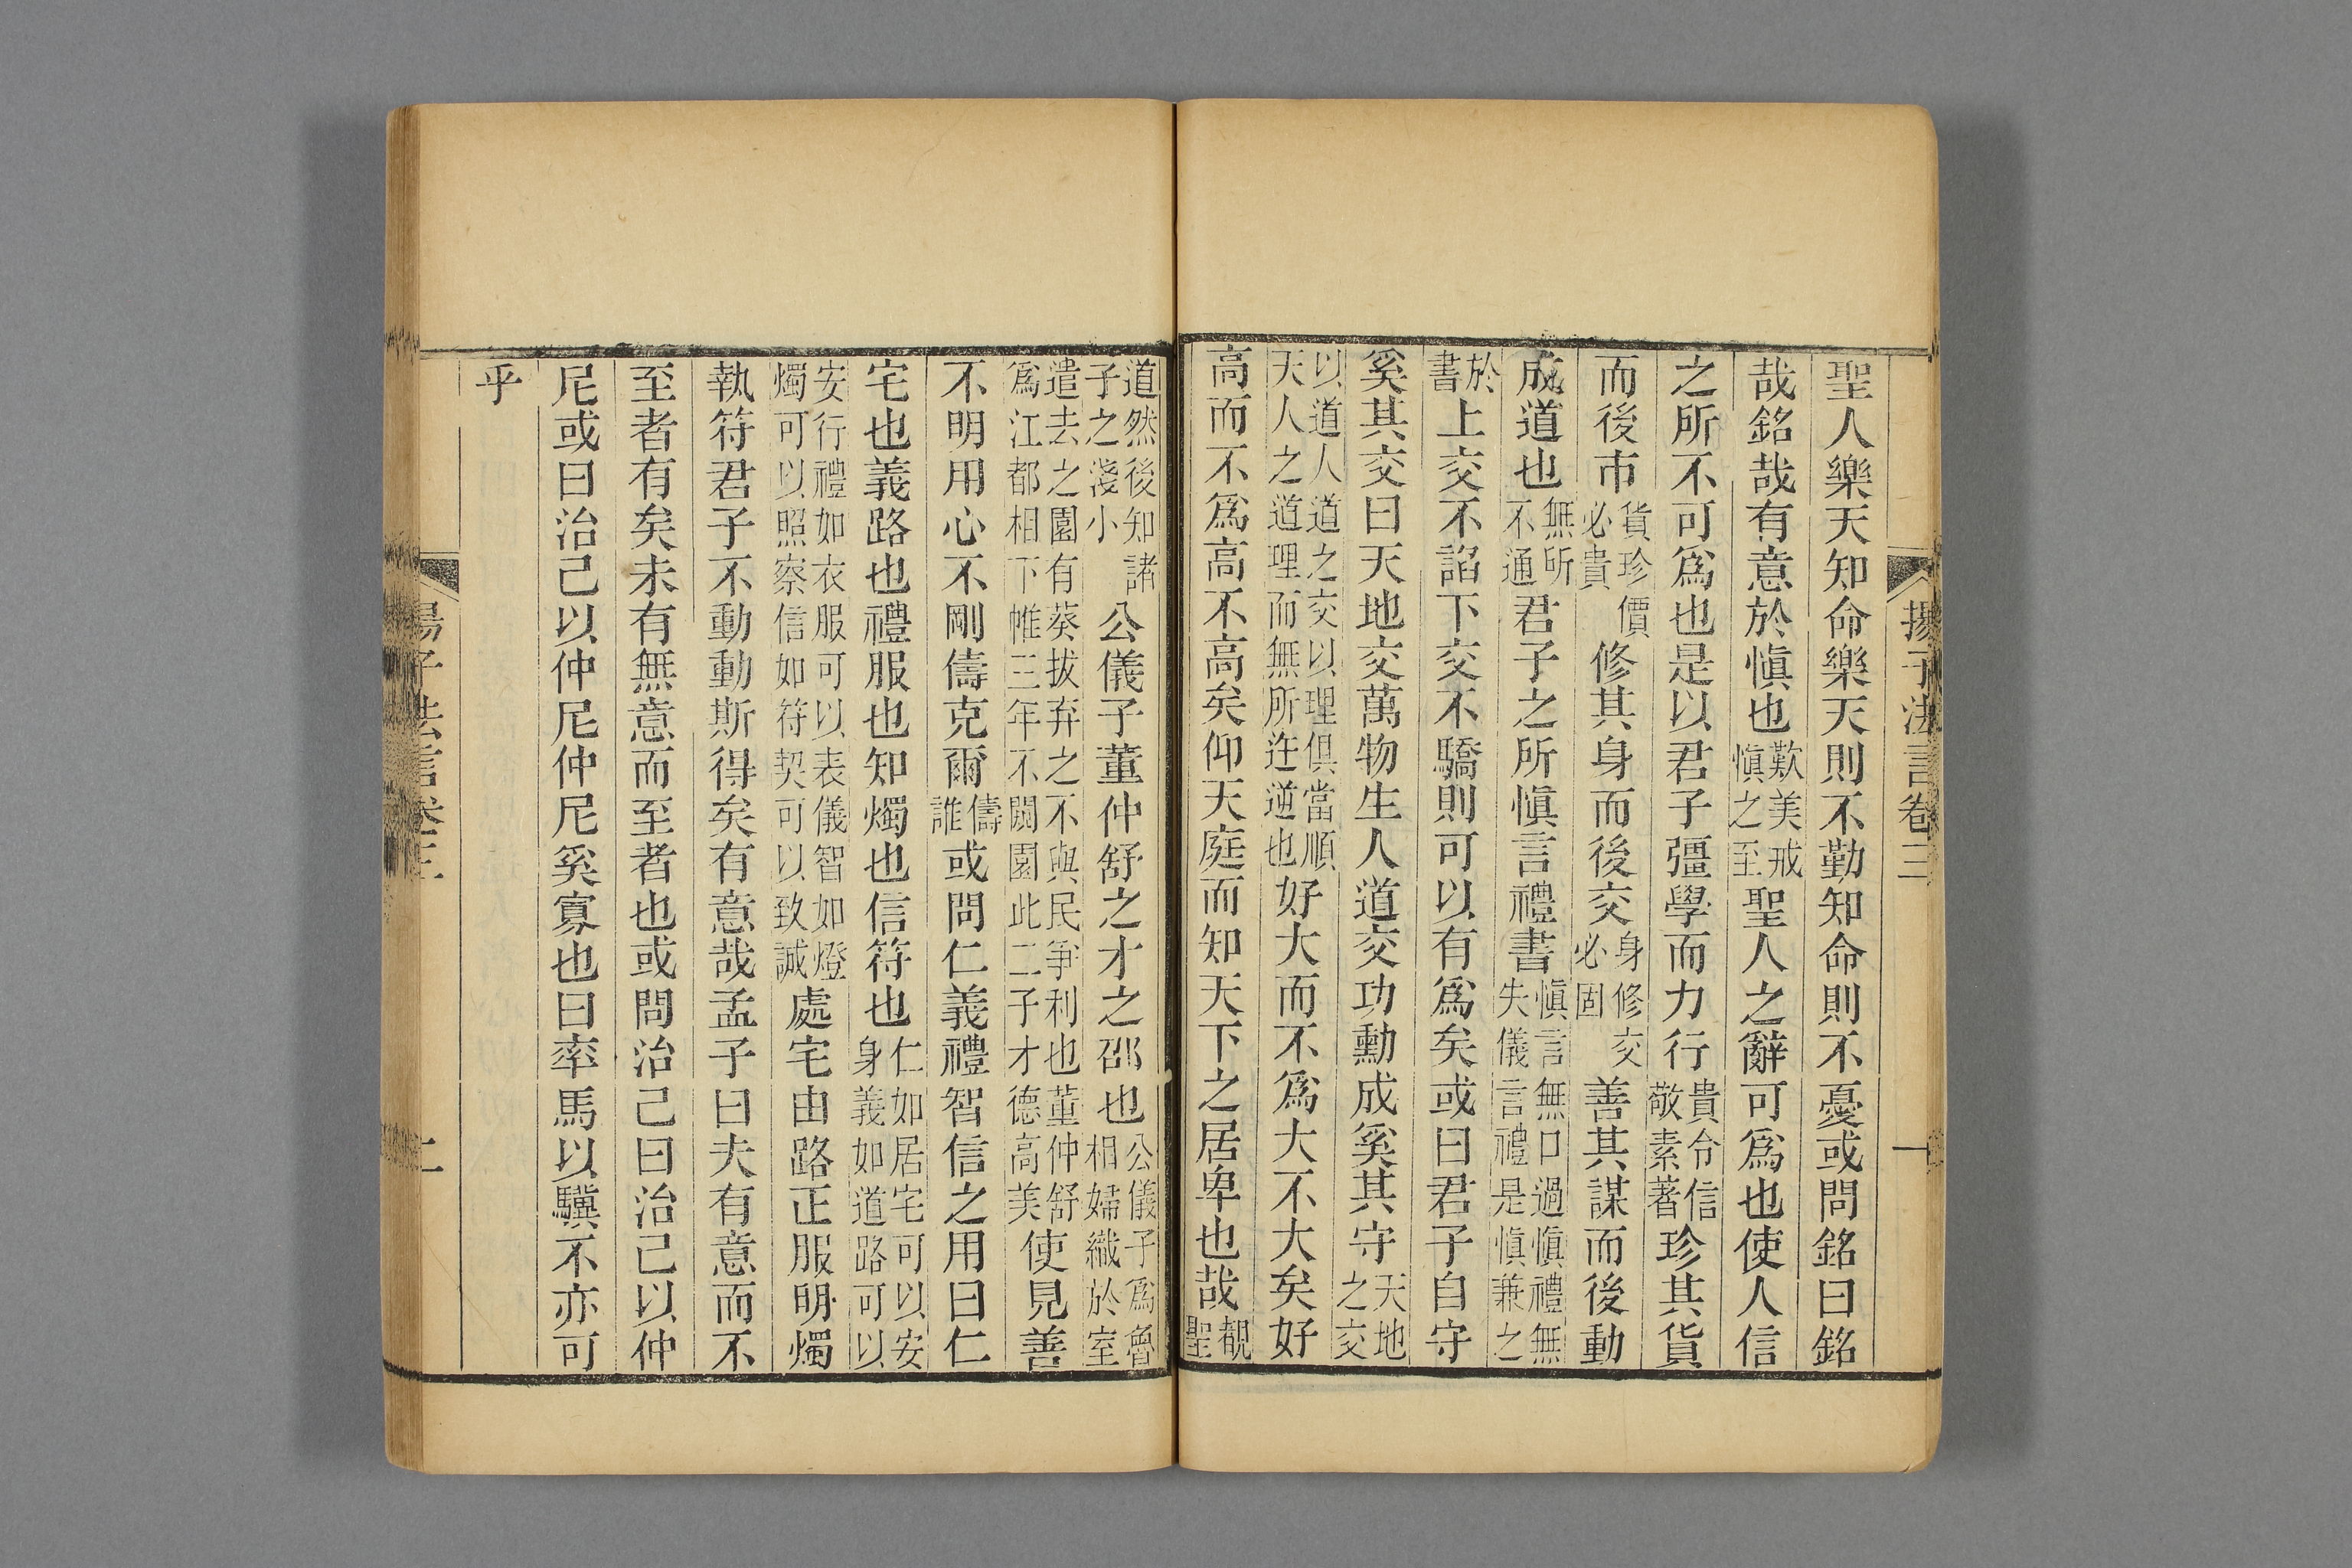 揚子法言卷三
一
聖人樂天知命樂天則不勤知命則不憂或問銘曰銘
哉銘哉有意於愼也歎美戒愼之至聖人之辭可爲也使人信
之所不可爲也是以君子彊學而力行貴令信敬素著珍其貨
而後市貨珍價必貴修其身而後交身修交必固善其謀而後動
成道也無所不通君子之所愼言禮書愼言無口過愼禮無失儀言禮是愼兼之
於書上交不諂下交不驕則可以有爲矣或曰君子自守
奚其交曰天地交萬物生人道交功勳成奚其守天地之交
以道人道之交以理俱當順天人之道理而無所迕逆也好大而不爲大不大矣好
高而不爲高不高矣仰天庭而知天下之居卑也哉覩聖
道然後知諸子之淺小公儀子董仲舒之才之邵也公儀子爲魯相婦織於室
遣去之園有葵拔弃之不與民爭利也董仲舒爲江都相下帷三年不闚園此二子才德高美使見善
不明用心不剛儔克爾儔誰或問仁義禮智信之用曰仁
宅也義路也禮服也知燭也信符也仁如居宅可以安身義如道路可以
安行禮如衣服可以表儀智如燈燭可以照察信如符契可以致誠處宅由路正服明燭
執符君子不動動斯得矣有意哉孟子曰夫有意而不
至者有矣未有無意而至者也或問治己曰治己以仲
尼或曰治己以仲尼仲尼奚寡也曰率馬以驥不亦可
乎
揚子法言卷三
二